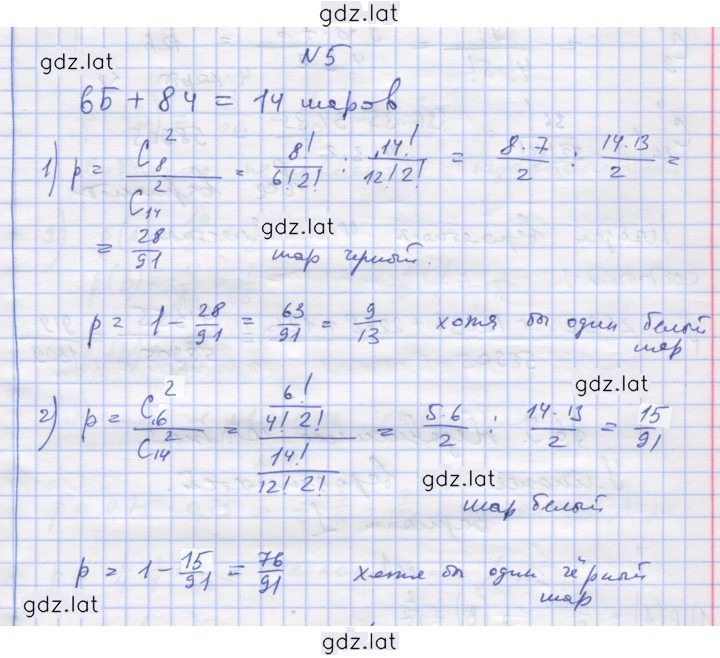 gdz.lat
gdz.lat
N5
6Б + 8Ч = 14 шаров
1) p = C₈² / C₁₄² = 8!/(6! 2!) : 14!/(12! 2!) = (8·7)/2 : (14·13)/2 =
= 28/91 шар черный.
gdz.lat
p = 1 - 28/91 = 63/91 = 9/13 хотя бы один белый
шар
gdz.lat
2) p = C₆² / C₁₄² = (6!/(4! 2!)) / (14!/(12! 2!)) = (5·6)/2 : (14·13)/2 = 15/91
gdz.lat
шар белый
p = 1 - 15/91 = 76/91 хотя бы один чёрный
шар
gdz.lat
gdz.lat